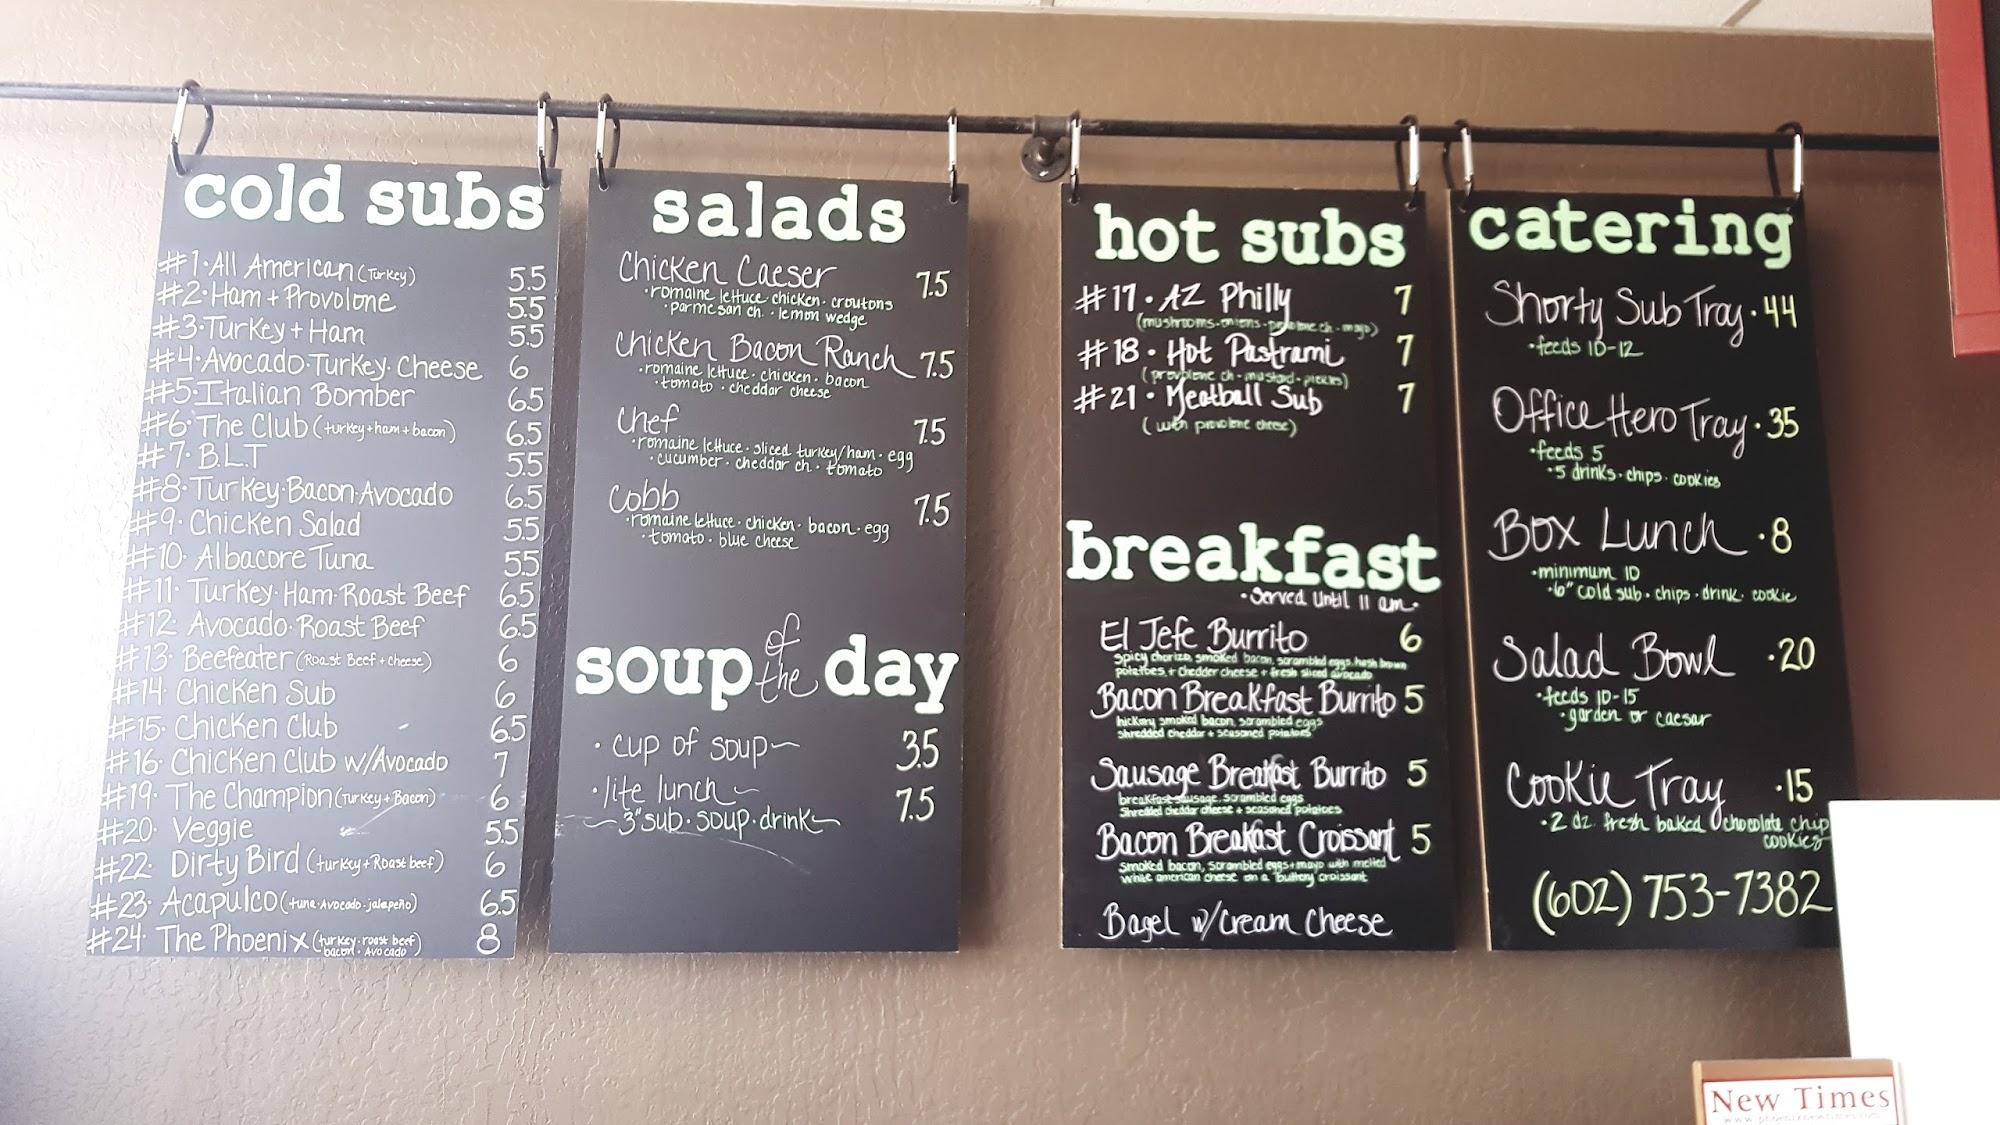 cold subs
#1·All American (Turkey) 5.5
#2·Ham + Provolone 5.5
#3·Turkey + Ham 5.5
#4·Avocado·Turkey·Cheese 6
#5·Italian Bomber 6.5
#6·The Club (turkey+ham+bacon) 6.5
#7·B.L.T 5.5
#8·Turkey·Bacon·Avocado 6.5
#9·Chicken Salad 5.5
#10·Albacore Tuna 5.5
#11·Turkey·Ham·Roast Beef 6.5
#12·Avocado·Roast Beef 6.5
#13·Beefeater (Roast Beef + cheese) 6
#14·Chicken Sub 6
#15·Chicken Club 6.5
#16·Chicken Club w/Avocado 7
#19·The Champion (Turkey + Bacon) 6
#20·Veggie 5.5
#22·Dirty Bird (turkey + Roast beef) 6
#23·Acapulco (tuna·Avocado·jalapeño) 6.5
#24·The Phoenix (turkey·roast beef 8
bacon·Avocado)
salads
Chicken Caeser 7.5
·romaine lettuce·chicken·croutons
·parmesan ch.·lemon wedge
Chicken Bacon Ranch 7.5
·romaine lettuce·chicken·bacon
·tomato·cheddar cheese
Chef 7.5
·romaine lettuce·sliced turkey/ham·egg
·cucumber·cheddar ch·tomato
Cobb 7.5
·romaine lettuce·chicken·bacon·egg
·tomato·blue cheese
soup of the day
·cup of soup~ 3.5
·lite lunch~ 7.5
~3"sub·soup·drink~
hot subs
#17·AZ Philly 7
(mushrooms·onions·provolone ch·mayo)
#18·Hot Pastrami 7
(provolone ch·mustard·pickles)
#21·Meatball Sub 7
(with provolone cheese)
breakfast
·Served until 11 am·
El Jefe Burrito 6
spicy chorizo, smoked bacon, scrambled eggs, hash brown
potatoes, + chedder cheese + fresh sliced avocado
Bacon Breakfast Burrito 5
hickory smoked bacon, scrambled eggs
shredded cheddar + seasoned potatoes
Sausage Breakfast Burrito 5
breakfast sausage, scrambled eggs
Shredded cheddar cheese + seasoned potatoes
Bacon Breakfast Croissant 5
smoked bacon, scrambled eggs + mayo with melted
white american cheese on a buttery croissant
Bagel w/Cream Cheese
catering
Shorty Sub Tray·44
·feeds 10-12
Office Hero Tray·35
·feeds 5
·5 drinks·chips·cookies
Box Lunch·8
·minimum 10
·6" cold sub·chips·drink·cookie
Salad Bowl·20
·feeds 10-15
·garden or caesar
Cookie Tray·15
·2 dz. fresh baked chocolate chip
cookies
(602) 753-7382
New Times